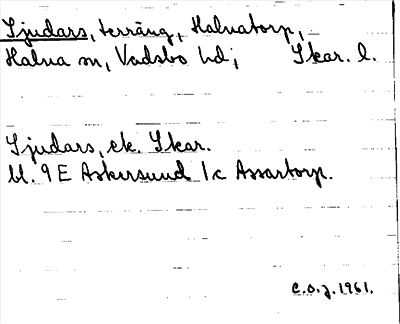 Sjudars, terräng, Halnatorp,
Halna sn, Vadsbo hd; Skar. l.
Sjudars, ek. Skar.
bl. 9E Askersund 1c Assartorp.
C.O.J. 1961.